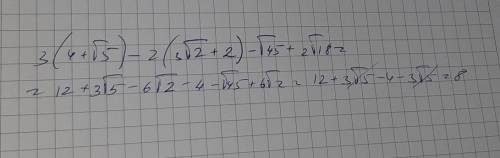 3(4+√5)-2(3√2+2)-√45+2√18=
= 12+3√5-6√2-4-√45+6√2=12+3√5-4-3√5=8